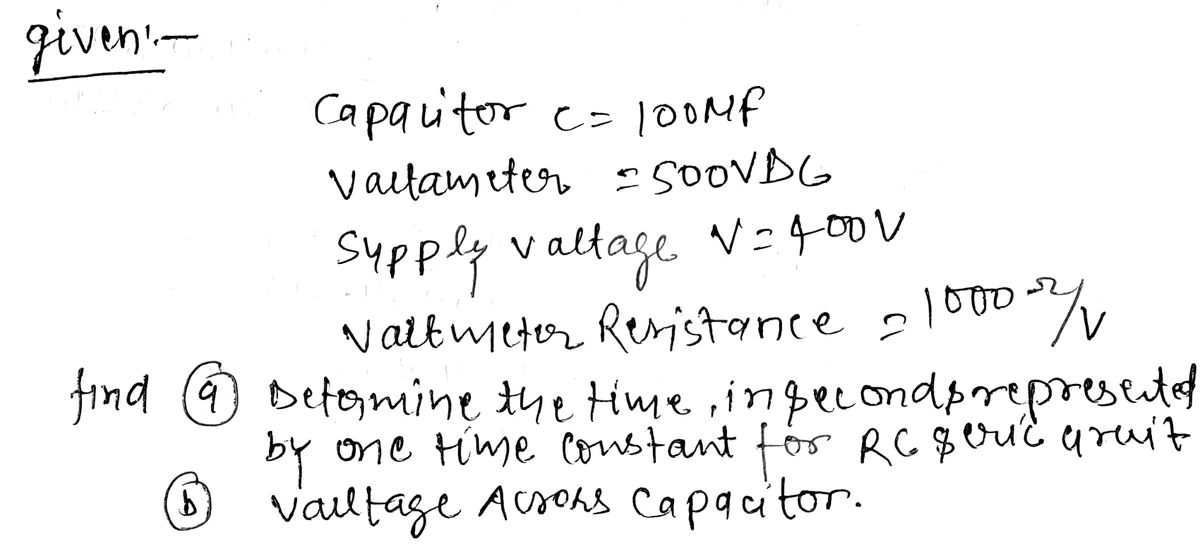 given:-
Capacitor C = 100Mf
Valtameter = 500VDC
Supply valtage V = 400V
Valtmeter Resistance = 1000 Ω/V
find (a) Determine the time, in seconds represented
by one time constant for RC seric circuit
(b) Vaultage Across Capacitor.